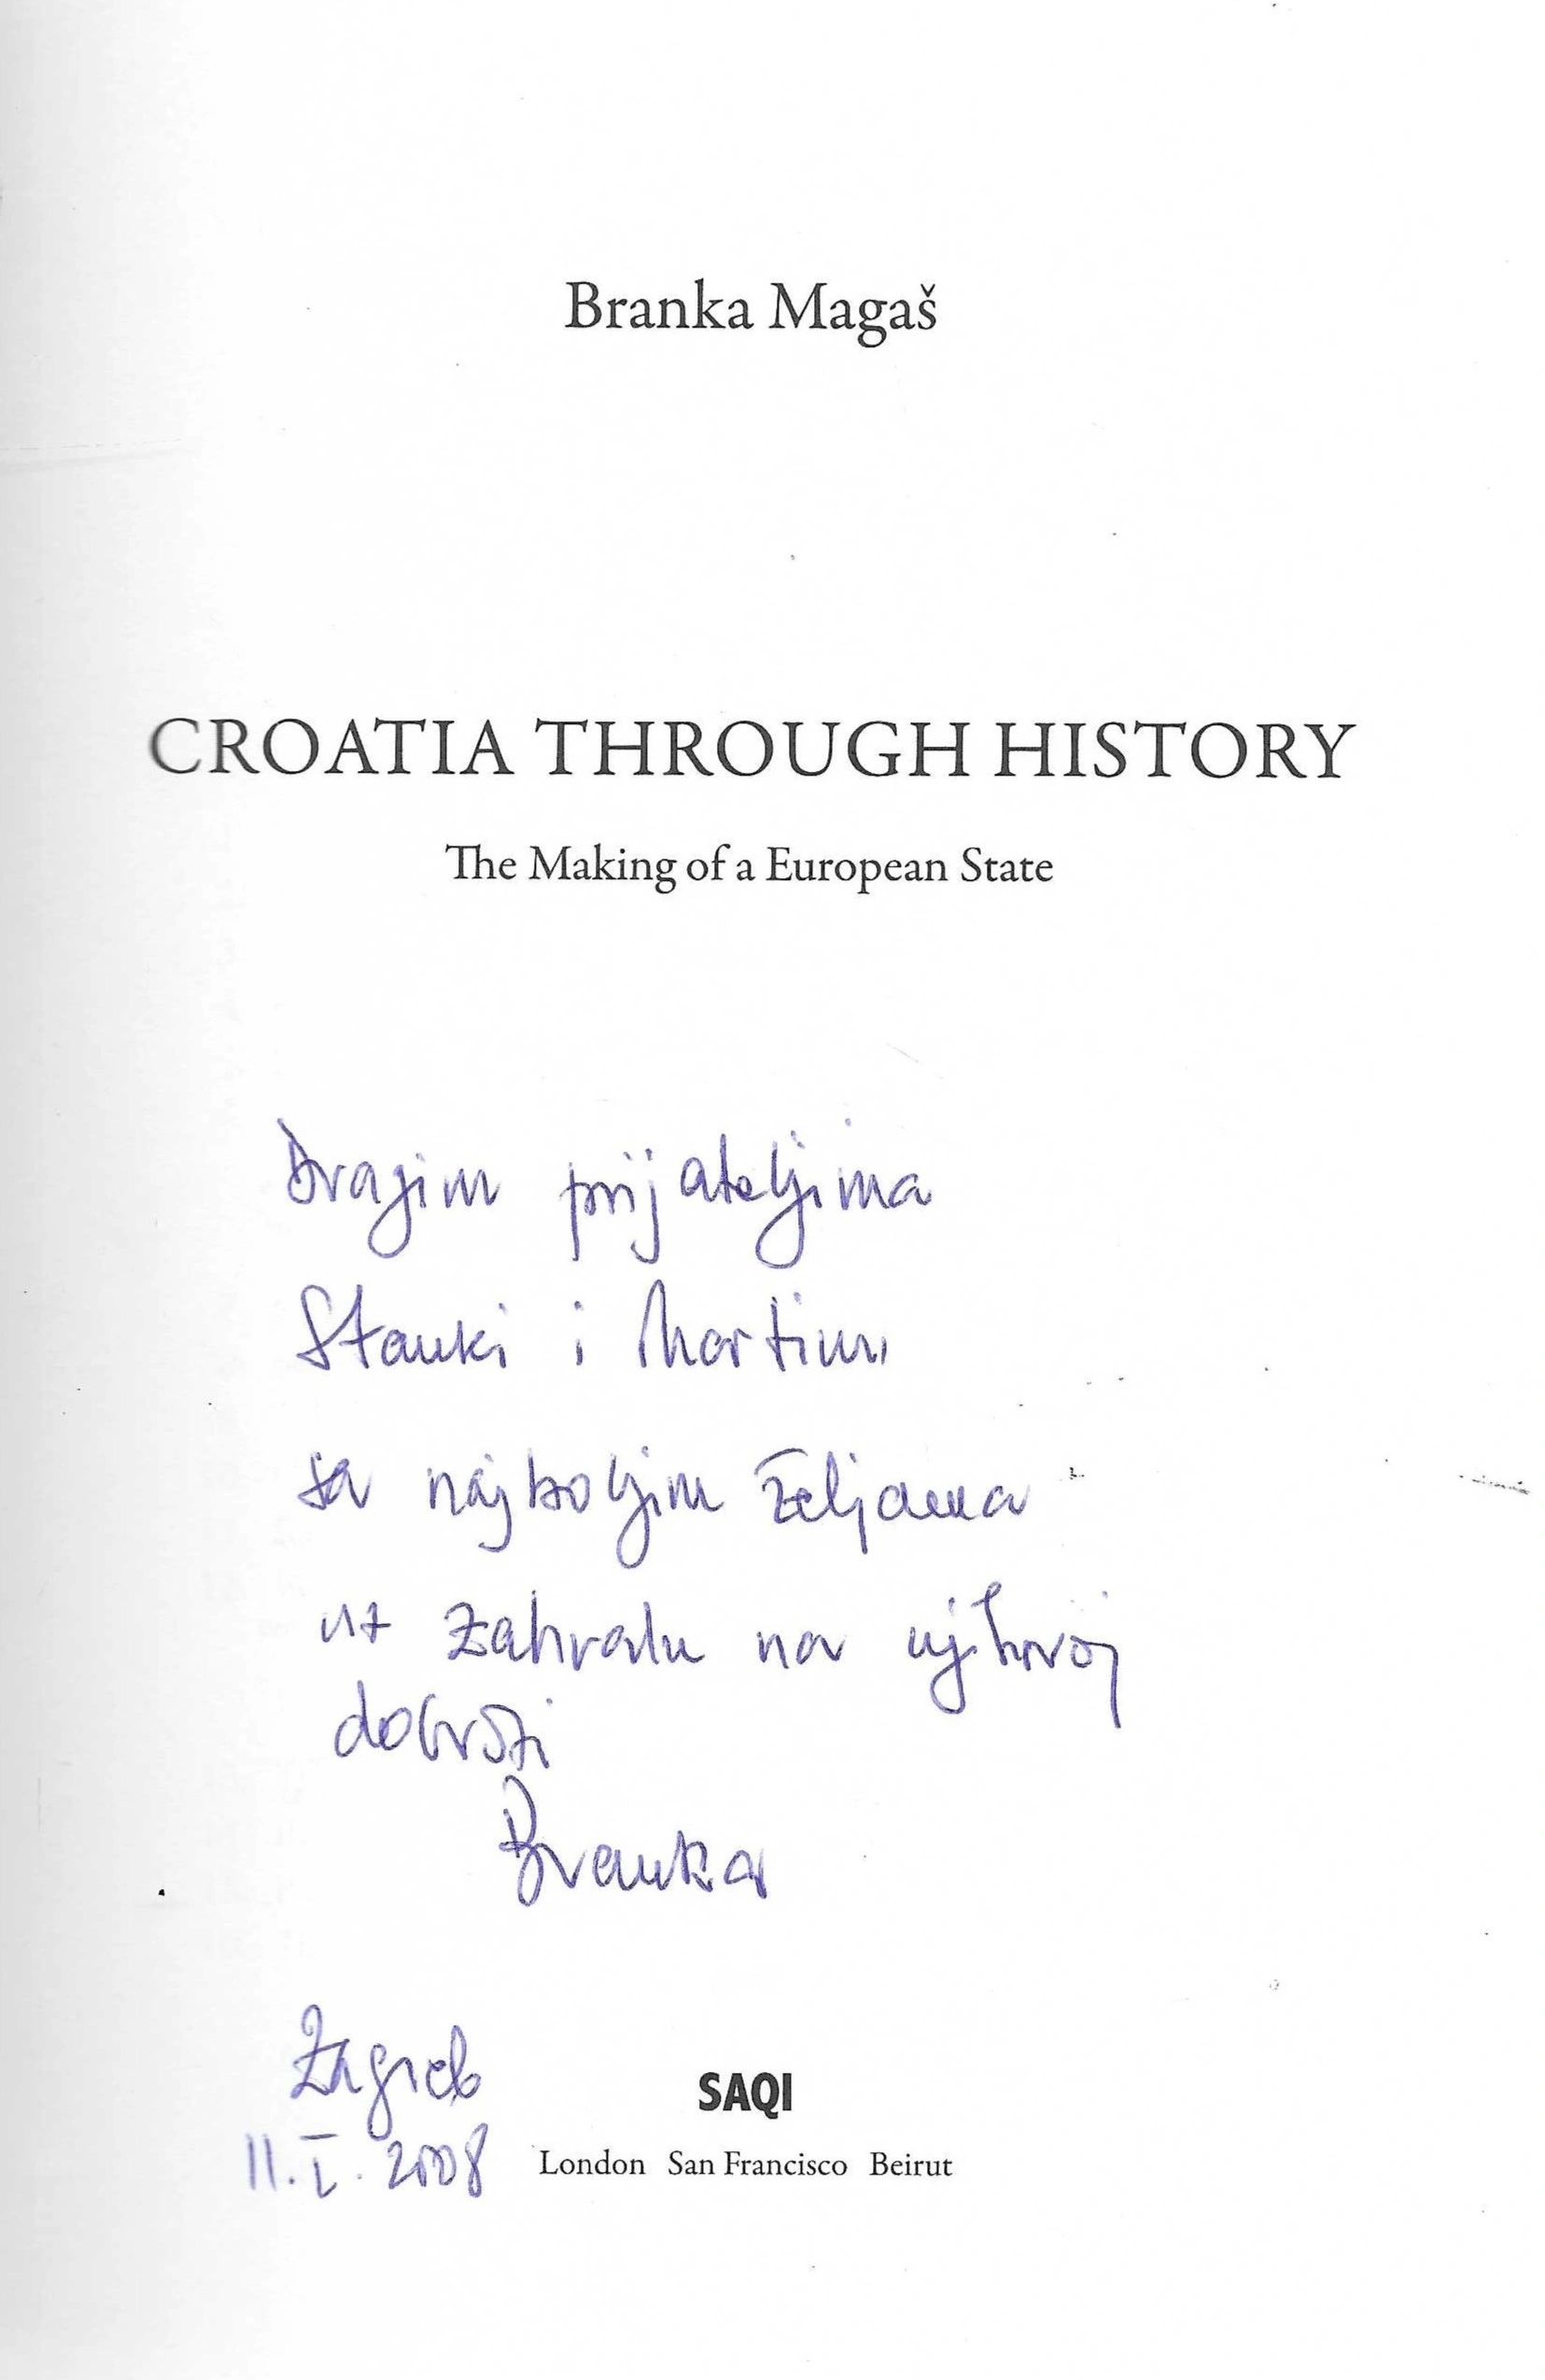 Branka Magaš
CROATIA THROUGH HISTORY
The Making of a European State
Dragim prijateljima
Stanki i Martinu
sa najboljim željama
uz zahvalu na njihovoj
dobroti
Branka
Zagreb
11. I. 2008
SAQI
London San Francisco Beirut